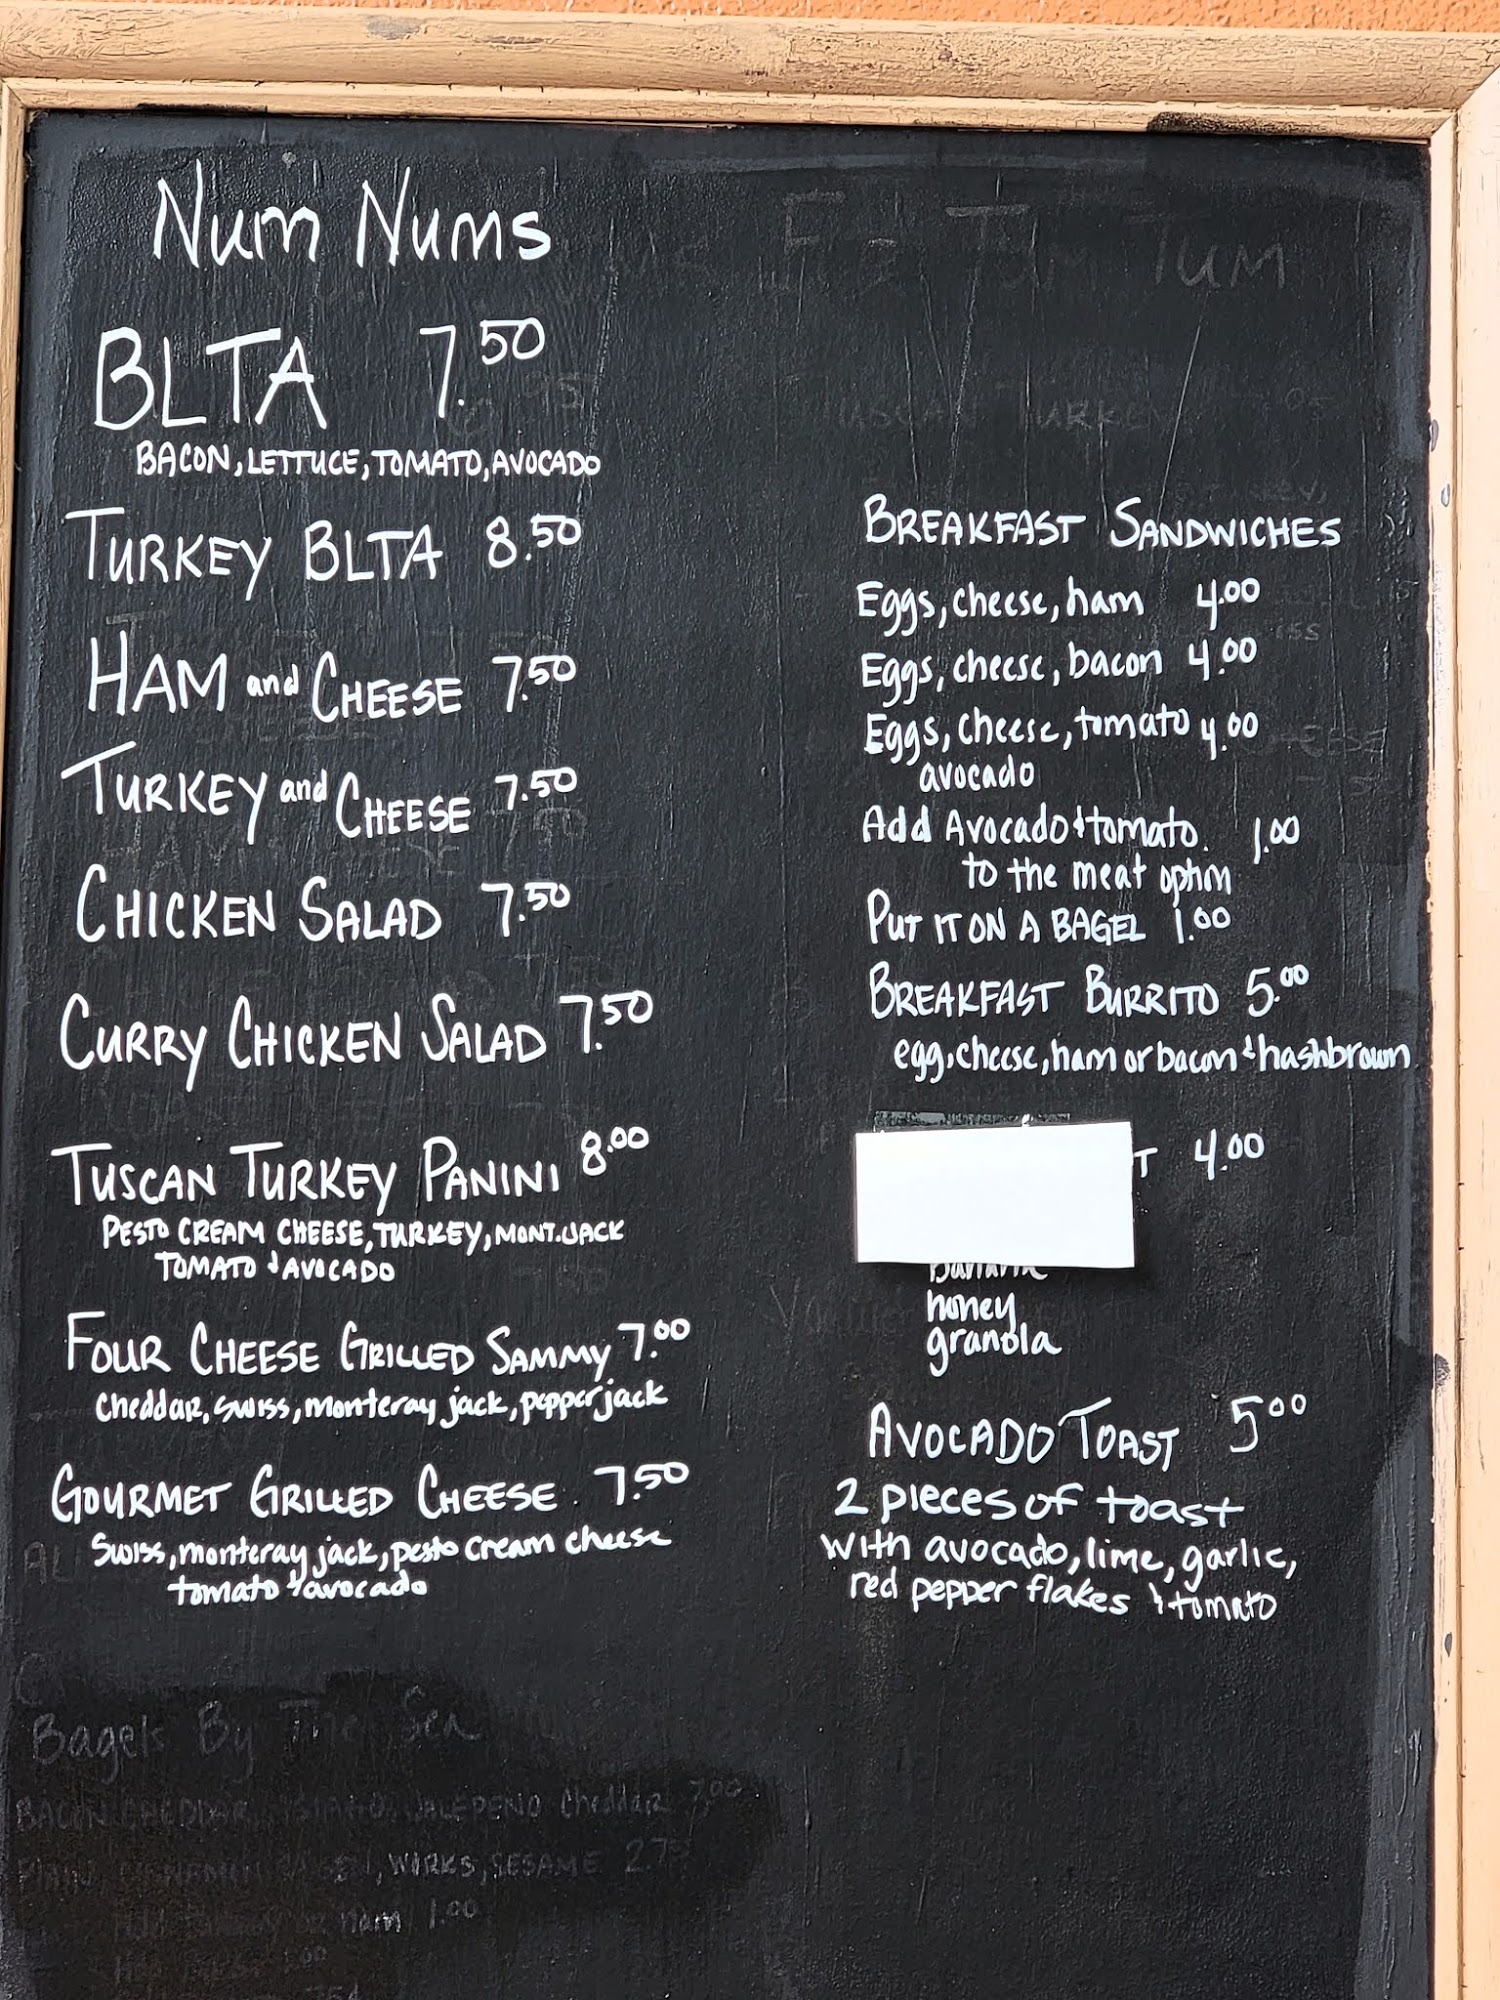 Num Nums
BLTA 7.50
BACON, LETTUCE, TOMATO, AVOCADO
TURKEY BLTA 8.50
HAM and CHEESE 7.50
TURKEY and CHEESE 7.50
CHICKEN SALAD 7.50
CURRY CHICKEN SALAD 7.50
TUSCAN TURKEY PANINI 8.00
PESTO CREAM CHEESE, TURKEY, MONT. JACK
TOMATO & AVOCADO
FOUR CHEESE GRILLED SAMMY 7.00
cheddar, swiss, monteray jack, pepper jack
GOURMET GRILLED CHEESE 7.50
Swiss, monteray jack, pesto cream cheese
tomato & avocado
Bagels By The Sea
Cheddar 3.00
WORKS, SESAME 2.75
ham 1.00
BREAKFAST SANDWICHES
Eggs, cheese, ham 4.00
Eggs, cheese, bacon 4.00
Eggs, cheese, tomato 4.00
avocado
Add Avocado & tomato. 1.00
to the meat option
PUT IT ON A BAGEL 1.00
BREAKFAST BURRITO 5.00
egg, cheese, ham or bacon & hashbrown
T 4.00
honey
granola
AVOCADO TOAST 5.00
2 pieces of toast
with avocado, lime, garlic,
red pepper flakes & tomato